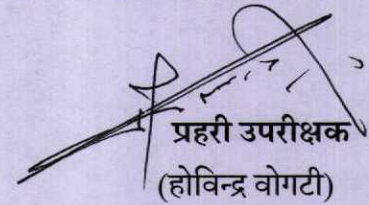 प्रहरी उपरीक्षक
(होविन्द्र वोगटी)